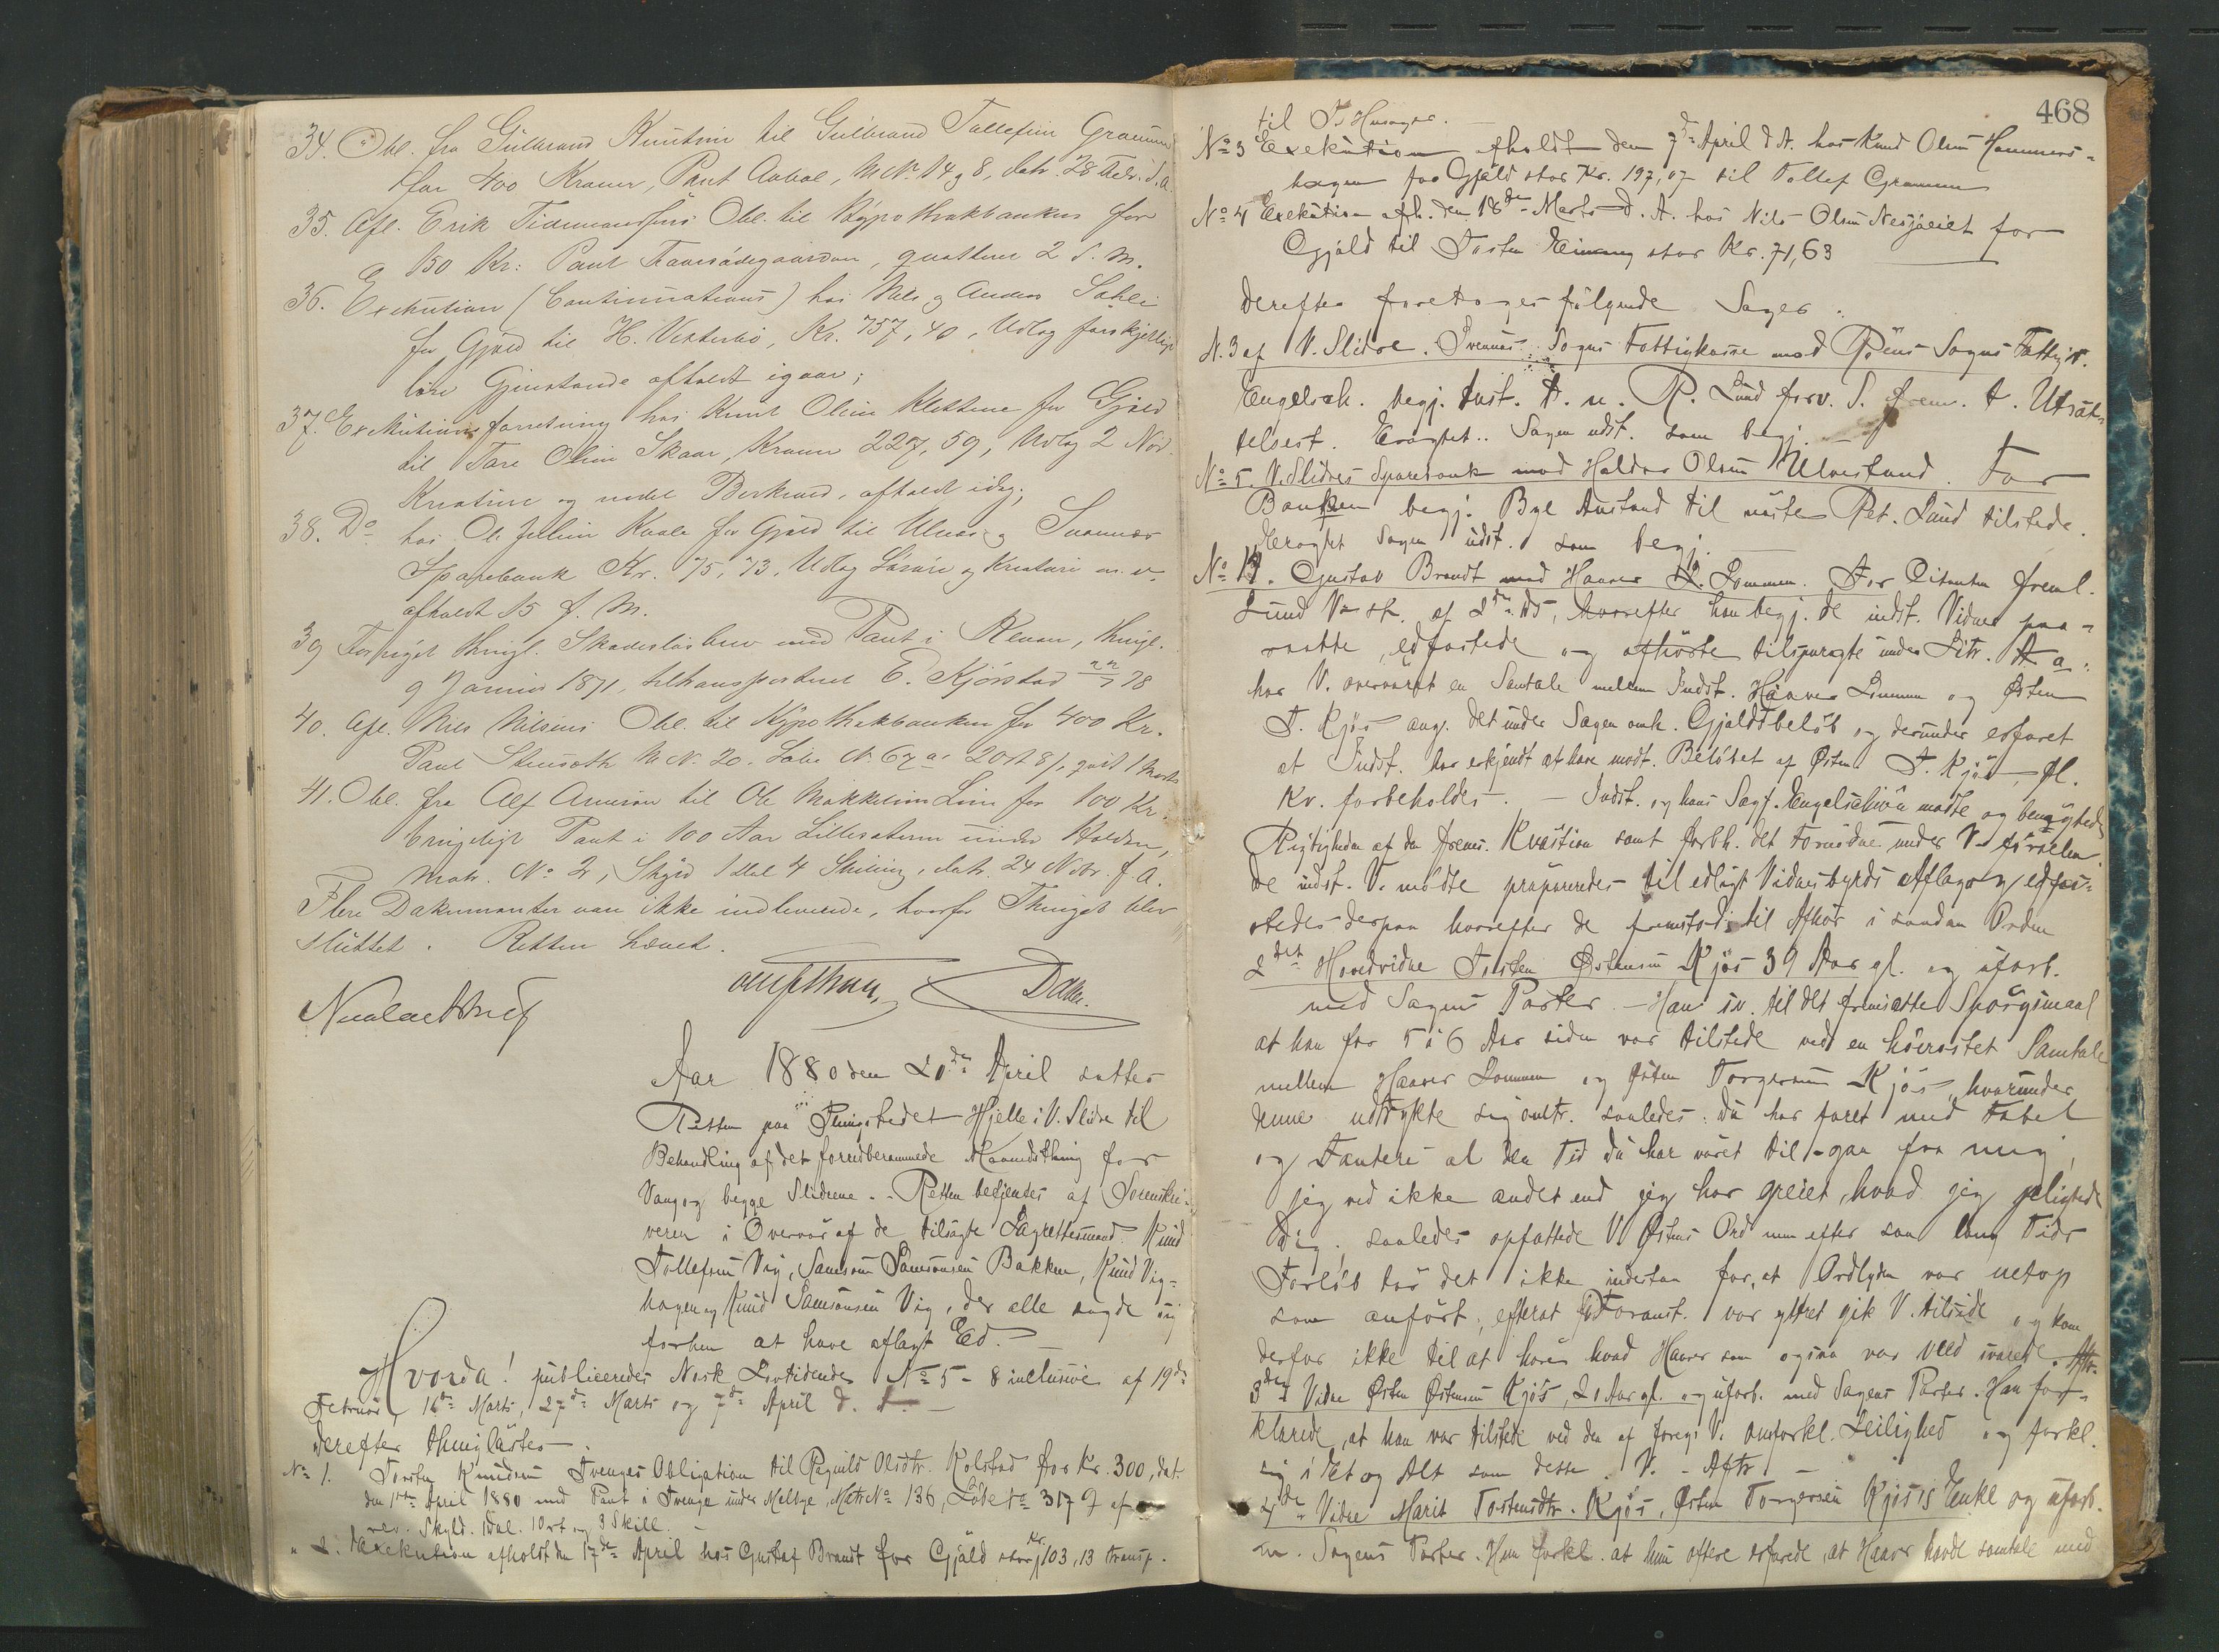 34. Obl. fra Gulbrand Knutsen til Gulbrand Tollefsen
for 400 Kroner, Pant M. No. 14 g 8, datr. 28 Febr. d. a.
35. Afl. Erik Obl. til Hypothekbanken for
150 Kr: Pant quitteret 2 d. M.
36. Exekution (Continuations) hos Nils og Anders
for Gjæld til H. Kr. 757,40, Udlæg forskjellige
løse Gjenstande afholdt igaar;
37. Exekutionsforretning hos Knut Olsen Klettene for Gjæld
til Tore Olsen Skaar, Kroner 227,59, Udlæg 2 Nød
Kreature og afholdt idag;
38. Do hos Ole Kvale for Gjæld til Ulnæs og Svennæs
Sparebank Kr. 75,73. Udlæg Løsøre og Kreature m. v.
afholdt 15 d. M.
39 thingl. Skadesløsbrev med Pant i thingl.
9 Januar 1871, til E. Kjørstad 78
40. Afl. Nils Nilsens Obl. til Hypothekbanken for 400 Kr.
Pant M. No. 20. Løbe No. 67 a. 2 ort 8 /, qvit 1 Marts
41. Obl. fra Alf til Ole for 100 Kr.
Pant i 100 Aar under
Matr. No 2, Skyld 1 Dal 4 Skilling, datr. 24 Novbr. f. A.
Flere Dokumenter var ikke indleverede, hvorfor Thinget blev
sluttet. Retten hævet.
Aar 1880 den 20de April sattes
Retten paa Thingstedet Hjelle i V. Slidre til
Behandling af det forudberammede Maanedsthing for
Vang og begge Slidrene. - Retten betjentes af Sorenskri-
veren i Overvær af de tilsagte Lagrettesmænd Knud
Tollefsen Vig, Samson Samsonsen Bakken, Knud Vig-
hagen og Knud Samsonsen Vig, der alle sagde sig
forhen at have aflagt Ed. —
Hvorda! publiceredes Norsk Lovtidende No 5 - 8 inclusive af 19de
Februar, 16de Marts, 27de Marts og 7de April d. A. —
derefter thinglæstes
No 1. Torsten Knudsen Tvenges Obligation til Ragnild Olsdtr. Kolstad for Kr. 300, dat.
den 1ste April 1880 med Pant i Tvenge under Melbye, Matr No 136, Løbe No 317 g af
rev. Skyld. 1 Dal. 1 Ort og 3 Skill. —
" 2. Exekution afholdt den 17de April hos Gustaf Brandt for Gjæld stor Kr. 103,13 transp.
468
til
No 3 Exekution afholdt den 7de April d. A. hos Knud Olsen Hammers-
haugen for Gjæld stor Kr. 197,07 til Tollef
No 4 Exekution afh. den 18de Marts d. A. hos Nils Olsen for
Gjæld til Torsten Einang stor Kr. 71,63
derefter foretoges følgende Sager.
N. 3 af V. Slidre. Svennes Sogns Fattigkasse mod Røens Sogns Fattigv.
Engelsch. begj. Anst. t. n. R. Lund forv. S. frem. t. Udsæt-
telsest. Eragtet.. Sagen udst. som begj. —
No 5. V. Slidres Sparebank mod Haldor Olsen Ulvestand. For
Banken begj. Bye Anstand til næste Ret. Lund tilstede.
Eragtet Sagen udst. som begj. —
No 11. Gustav Brandt mod Haaver Lommen. For Citanten freml.
Lund V. st. af 2den ds, hvorefter han begj. de indst. Vidner paa-
raabte, edfæstede og afhørte tilspurgte under Litr. A a.
har V. overværet en Samtale mellem Indst. Haaver Lommen og Østen
T. Kjøs ang. det under Sagen omh. Gjældsbeløb og derunder erfaret
at Indst. har erkjendt at have modt. Beløbet af Østen T. Kjøs, fl.
Kv. forbeholdes. — Indst. og hans Sagf. Engelschiøn mødte og benægtede
Rigtigheden af den frems. Kvæstion samt forbh. det Fornødne under V. førselen.
De indst. V. mødte præpareredes til edligt Vidnesbyrds Aflæg og edfæs-
stedes derpaa hvorefter de fremstod til Afhør i saadan Orden
2det Hovedvidne Torsten Østensen Kjøs 39 Aar gl. og uforb.
med Sagens Parter. — Han sv. til det fremsatte Spørgsmaal
at han for 5 à 6 Aar siden var tilstede ved en høirøstet Samtale
mellem Haaver Lommen og Østen Torgersen Kjøs, hvorunder
denne udtrykte sig omtr. saaledes: du har faret med Fabel
og Fanteri al den Tid du har været til-gaa fra mig,
jeg ved ikke andet end jeg har greiet, hvad jeg pligtede
Dig; saaledes opfattede V. Østens Ord men efter saa lang Tids
Forløb tør det ikke indestaa for, at Ordlyden var netop
som anført; efterat Foranst. var ydtret gik V. tilside og kom
derfor ikke til at høre hvad Haaver som ogsaa var vred svarede. Aftr.
3die Vidne Østen Østensen Kjøs, 21 Aar gl. og uforb. med Sagens Parter. Han for-
klarede, at han var tilstede ved den af foreg. V. omforkl. Leilighed og forkl.
sig i Et og Alt som dette V. - Aftr —
4de Vidne Marit Tostensdtr. Kjøs, Østen Torgersen Kjøs's Enke og uforb.
m. Sagens Parter. Hun forkl. at hun oftere erfarede, at Haaver havde samtale med